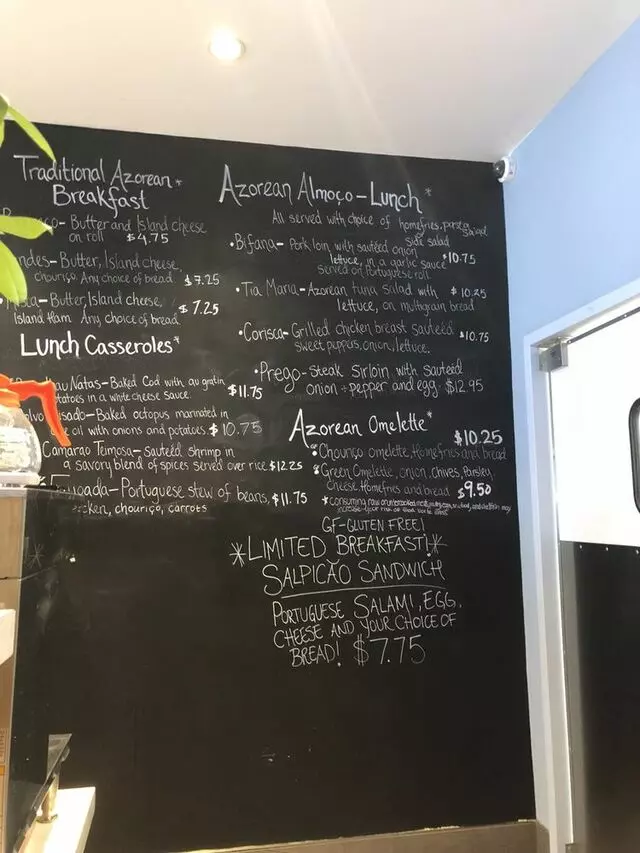 Traditional Azorean *
Breakfast
Butter and Island cheese
on roll $4.75
Butter, Island cheese,
chouriço. Any choice of bread. $7.25
Butter, Island cheese, $7.25
Island Ham. Any choice of bread.
Lunch Casseroles*
Natas-Baked Cod with au gratin
in a white cheese sauce. $11.75
Baked octopus marinated in
oil with onions and potatoes. $10.75
Camarao Teimosa- sautéed shrimp in
a savory blend of spices served over rice $12.25
Portuguese stew of beans, $11.75
chouriço, carrots
Azorean Almoço-Lunch *
All served with choice of homefries,
side salad
•Bifana- Pork loin with sautéed onion
lettuce, in a garlic sauce $10.75
served on Portuguese roll.
•Tia Maria-Azorean tuna salad with $10.25
lettuce, on multigrain bread
•Corisca-Grilled chicken breast sauteed $10.75
sweet peppers, onion, lettuce.
•Prego-steak Sirloin with sauteéd
onion + pepper and egg. $12.95
Azorean Omelette*
$10.25
Chouriço omelette, Homefries and bread
Green Omelette, onion, chives, Parsley,
Cheese, Homefries and bread $9.50
*consuming raw or
increase your risk of
GF-GLUTEN FREE!
*LIMITED BREAKFAST!*
SALPICÃO SANDWICH
PORTUGUESE SALAMI, EGG,
CHEESE AND YOUR CHOICE OF
BREAD! $7.75